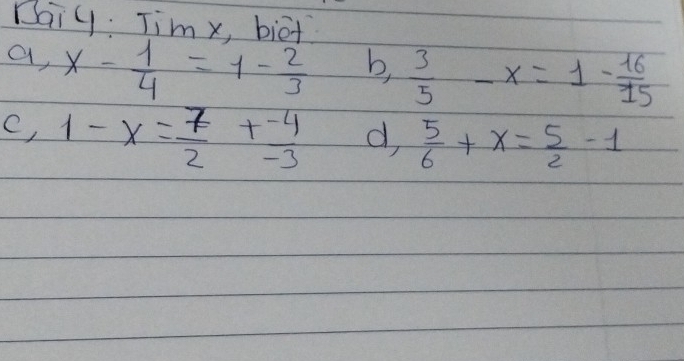 Bài 4: Tìm x, biết
a, x - 1/4 = 1 - 2/3 b, 3/5 - x = 1 - 16/15
c, 1 - x = 7/2 + -4/-3 d, 5/6 + x = 5/2 - 1